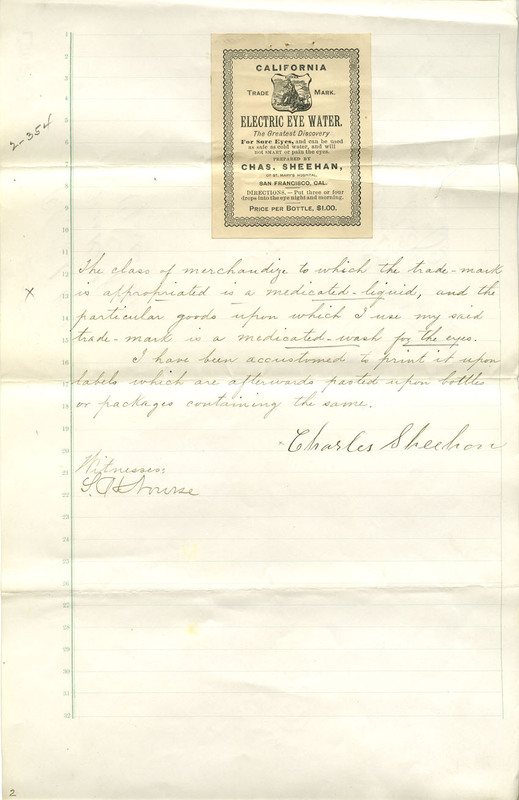 CALIFORNIA
TRADE MARK.
ELECTRIC EYE WATER.
The Greatest Discovery
For Sore Eyes, and can be used
as safe as cold water, and will
not SMART or pain the eyes.
PREPARED BY
CHAS. SHEEHAN,
OF ST. MARY'S HOSPITAL,
SAN FRANCISCO, CAL.
DIRECTIONS.—Put three or four
drops into the eye night and morning.
PRICE PER BOTTLE, $1.00.
2-354
1
2
3
4
5
6
7
8
9
10
11
12
13
14
15
16
17
18
19
20
21
22
23
24
25
26
27
28
29
30
31
32
The class of merchandize to which the trade-mark
x is appropriated is a medicated-liquid, and the
particular goods upon which I use my said
trade-mark is a medicated-wash for the eyes.
I have been accustomed to print it upon
labels which are afterwards pasted upon bottles
or packages containing the same.
Charles Sheehan
Witnesses:
Nourse
2